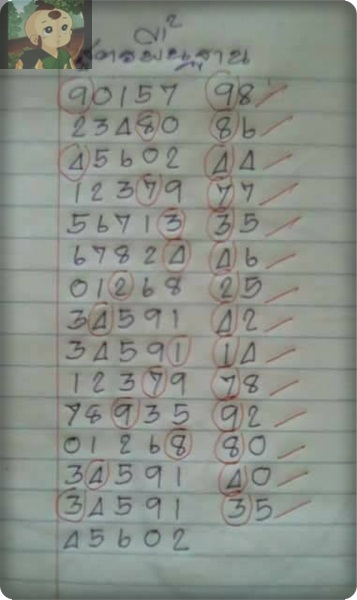 ลา²
สูตรมีนฐาน
90157 98
23480 86
45602 44
12379 77
56713 35
67824 46
01268 25
34591 42
34591 14
12379 78
78935 92
01268 80
34591 40
34591 35
45602